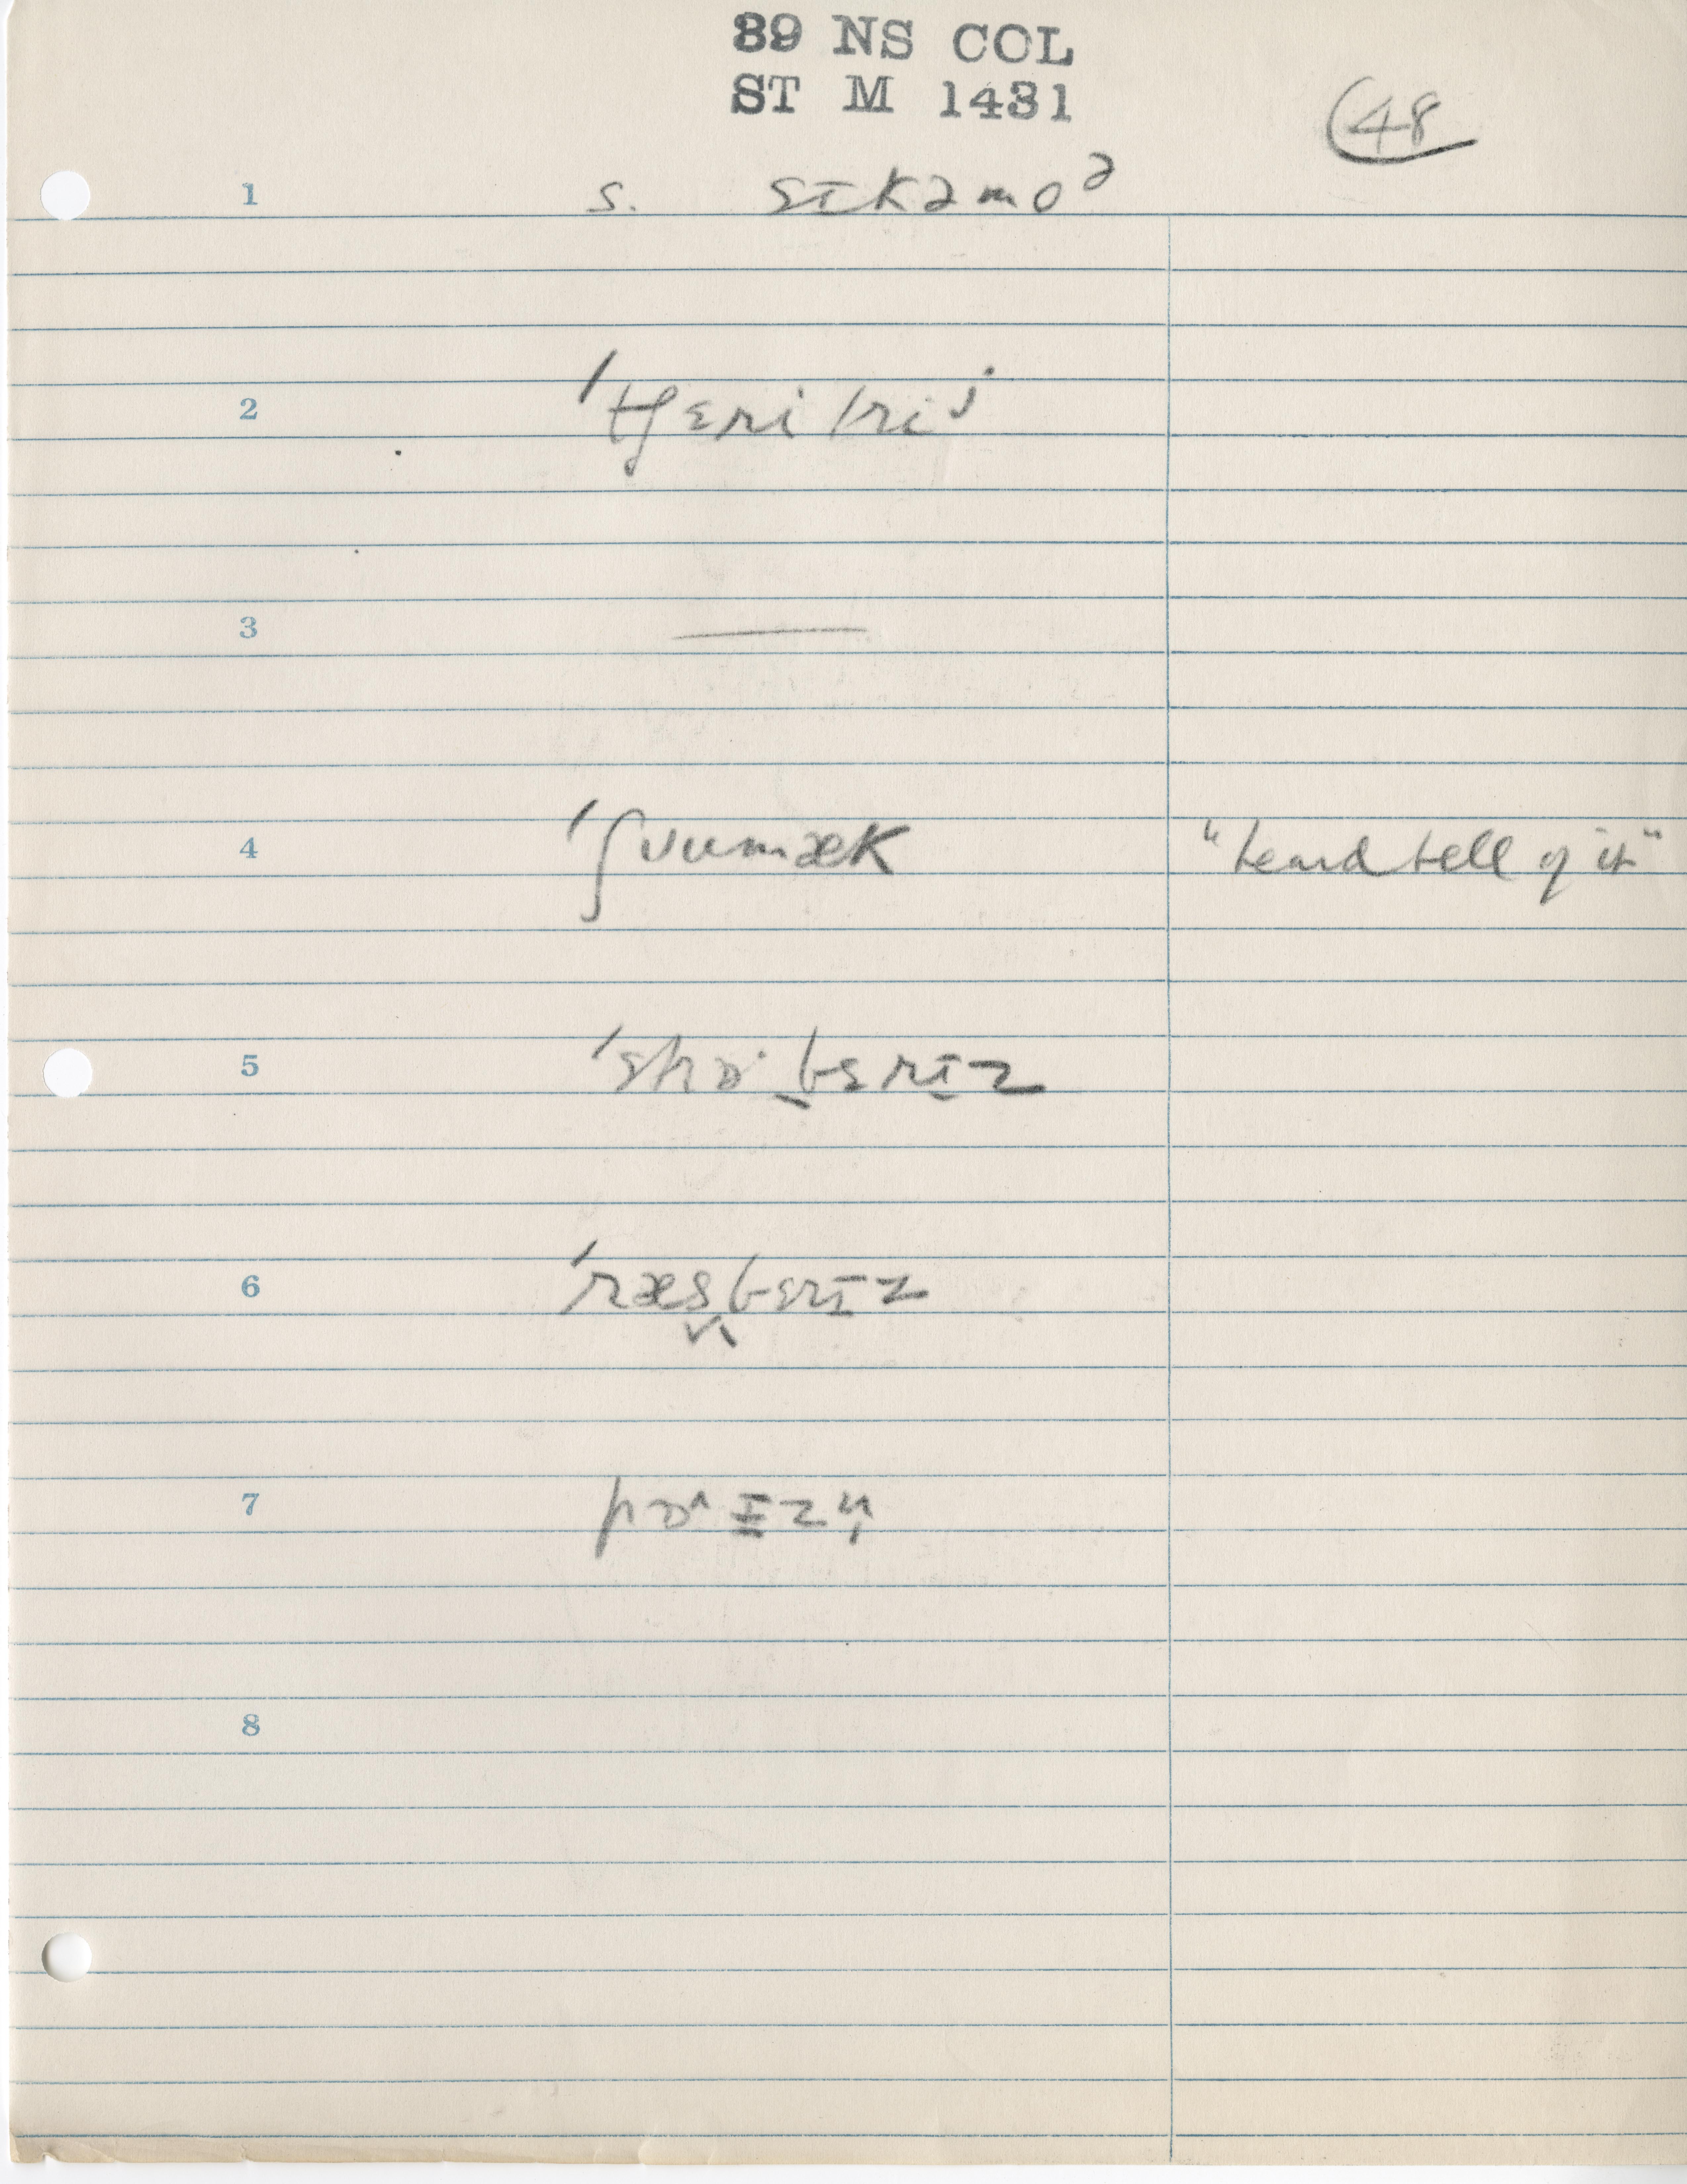 89 NS COL
ST M 1431
48
1 s. sɪkəmoᵊ
2 ˈtʃɛri triʲ
3 —
4 ˈʃuumæk "heard tell of it"
5 ˈstrɔˑbɛrɪz
6 ˈræsbɛrɪz
7 pɔ^ɪzn̩
8